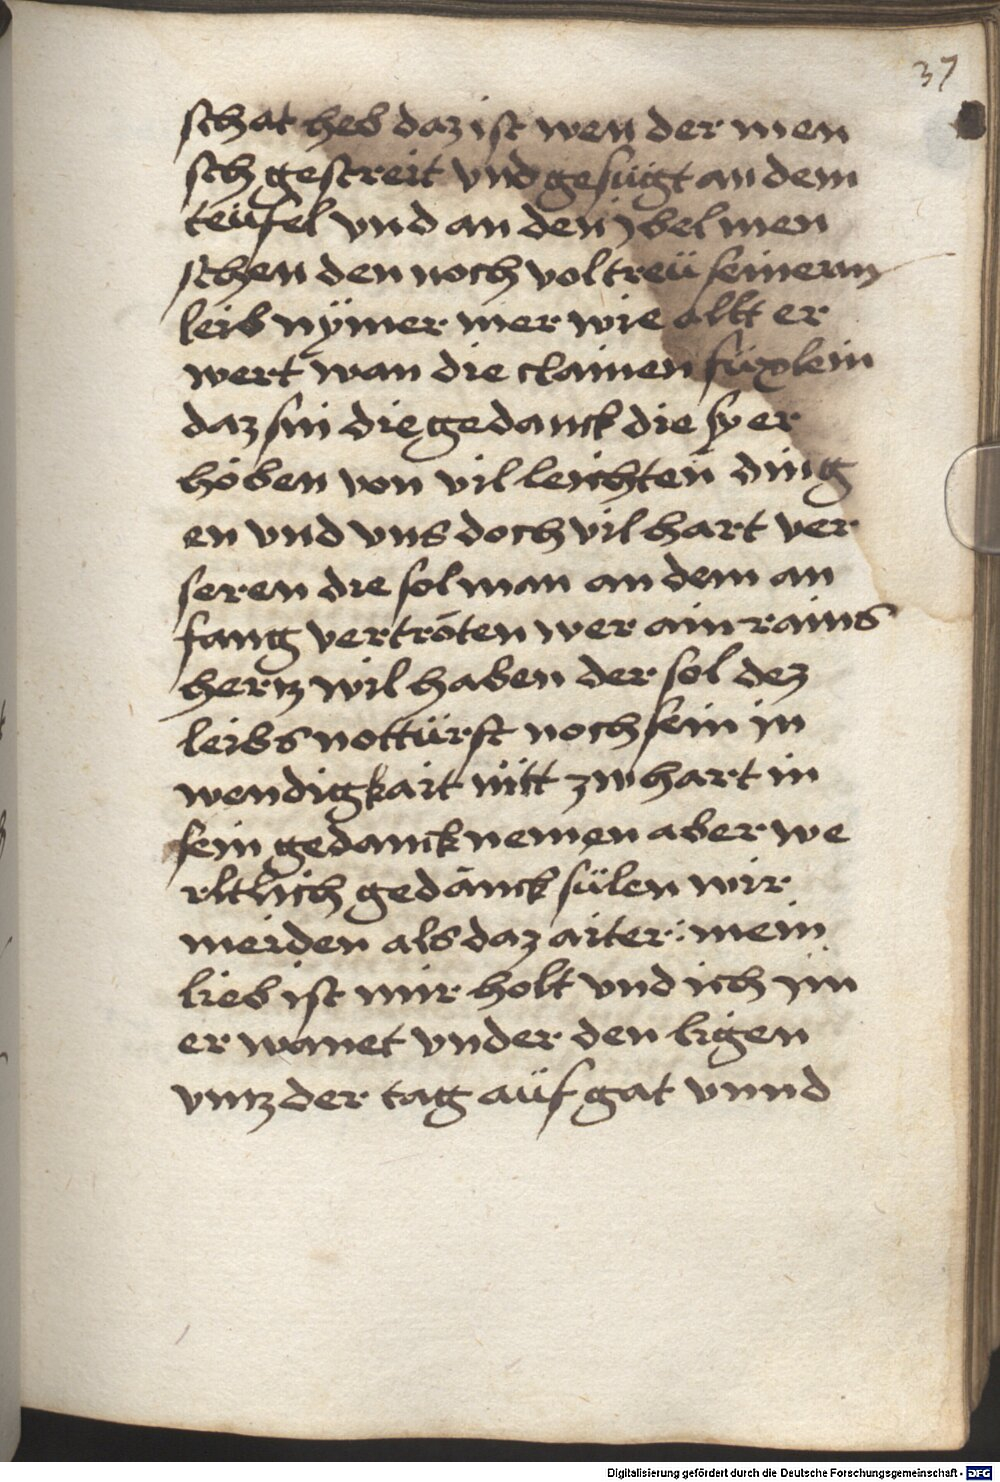 37
schat heb daz ist wen der men
sch gestreit vnd gesugt an dem
teüfel vnd an den ybel men
schen den noch vol treü seinem
leib nÿmer mer wie allt er
wert wan die clainen füxlein
daz sin die gedanck die sy er
höben von vil leichten ding
en vnd vns doch vil hart ver
seren die sol man an dem an
fang vertröten wer ain rains
hertz wil haben der sol dez
leibs nottürft noch sein in
wendigkait nitt zw hart in
sein gedanck nemen aber we
rltlich gedänck sülen wir
meiden als daz aiter: mein
lieb ist mir holt vnd ich im
er wanet vnder den ligen
vntz der tag aüf gat vnnd
Digitalisierung gefördert durch die Deutsche Forschungsgemeinschaft - DFG